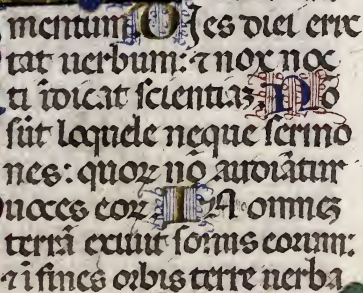 mentum Dies diei eruc
tat uerbum: ⁊ nox noc
ti īdicat scientiaꝫ No
sūt loquele neque sermo
nes: quoꝝ nō audiātur
uoces eoꝝ In omneꝫ
terrā exiuit sonus eorum:
⁊ ī fines orbis terre uerba